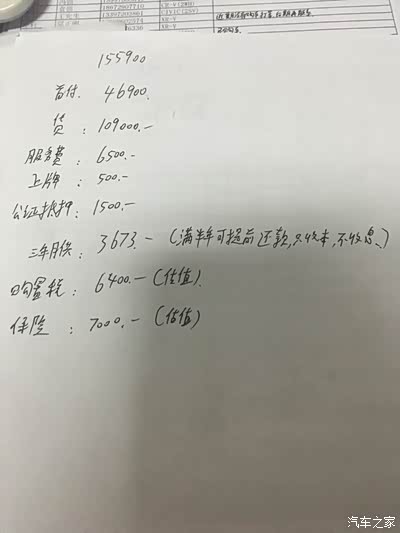 155900
首付. 46900.
贷 : 109000.-
服务费 : 6500.-
上牌 : 500.-
公证抵押 : 1500.-
三年月供 : 3673.- (满半年可提前还款,只收本,不收息.)
购置税 : 6400.- (估值).
保险 : 7000.- (估值)
汽车之家